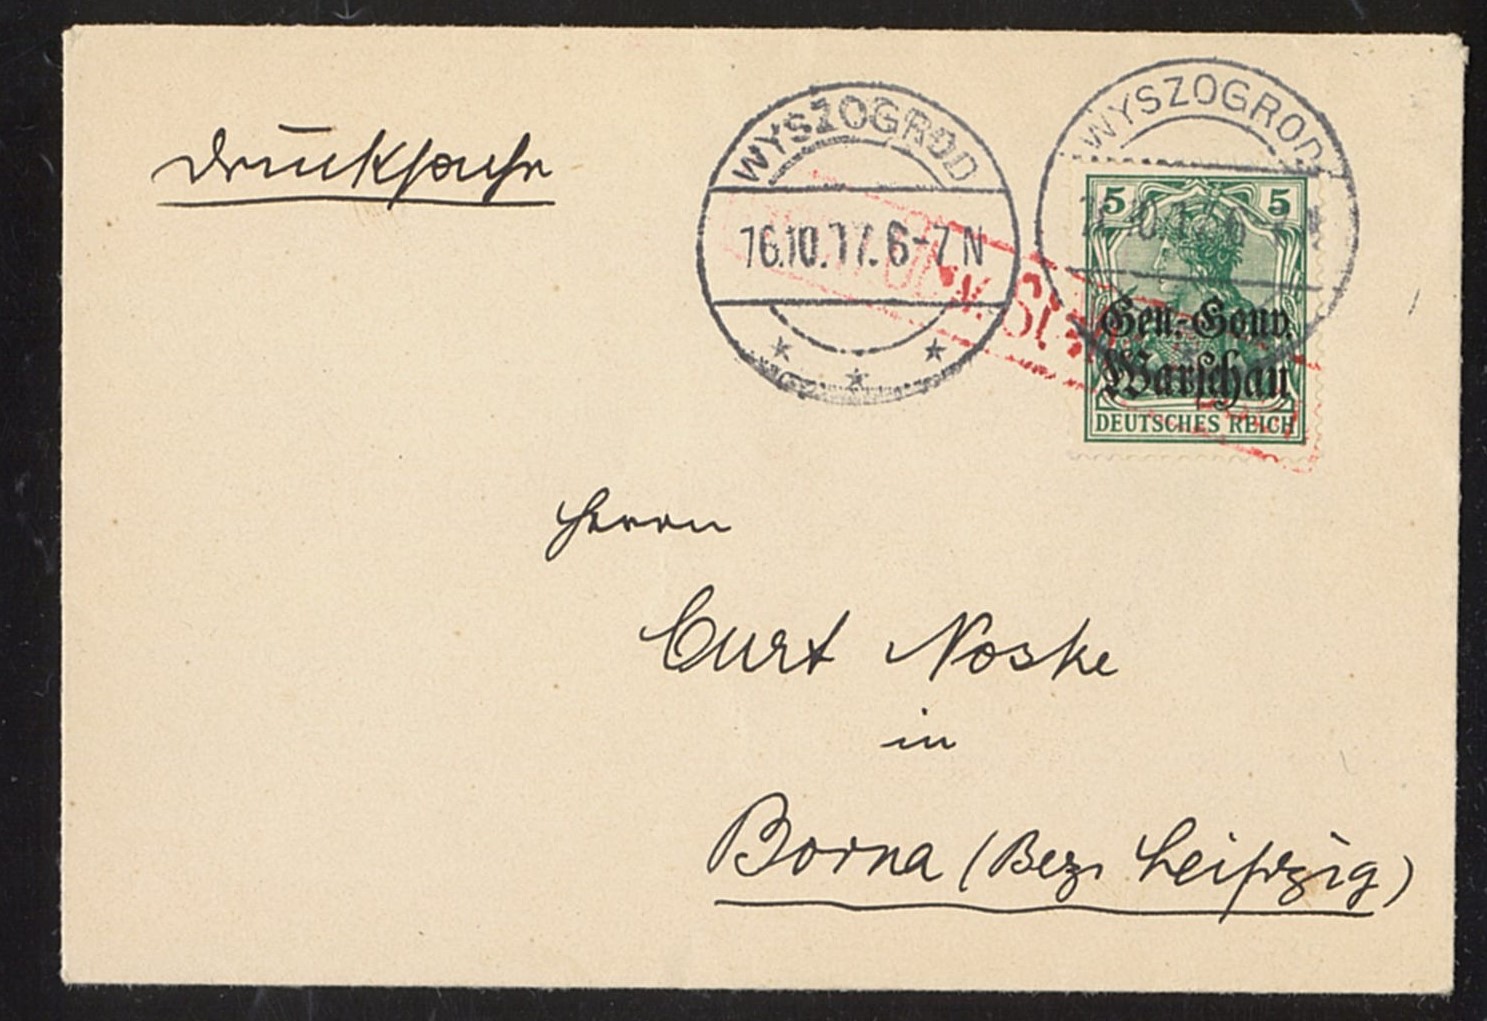 Drucksache
WYSZOGROD
16.10.17. 6-7 N
WYSZOGROD
5 5
Gen.-Gouv.
Warschau
DEUTSCHES REICH
Herrn
Curt Noske
in
Borna (Bez. Leipzig)